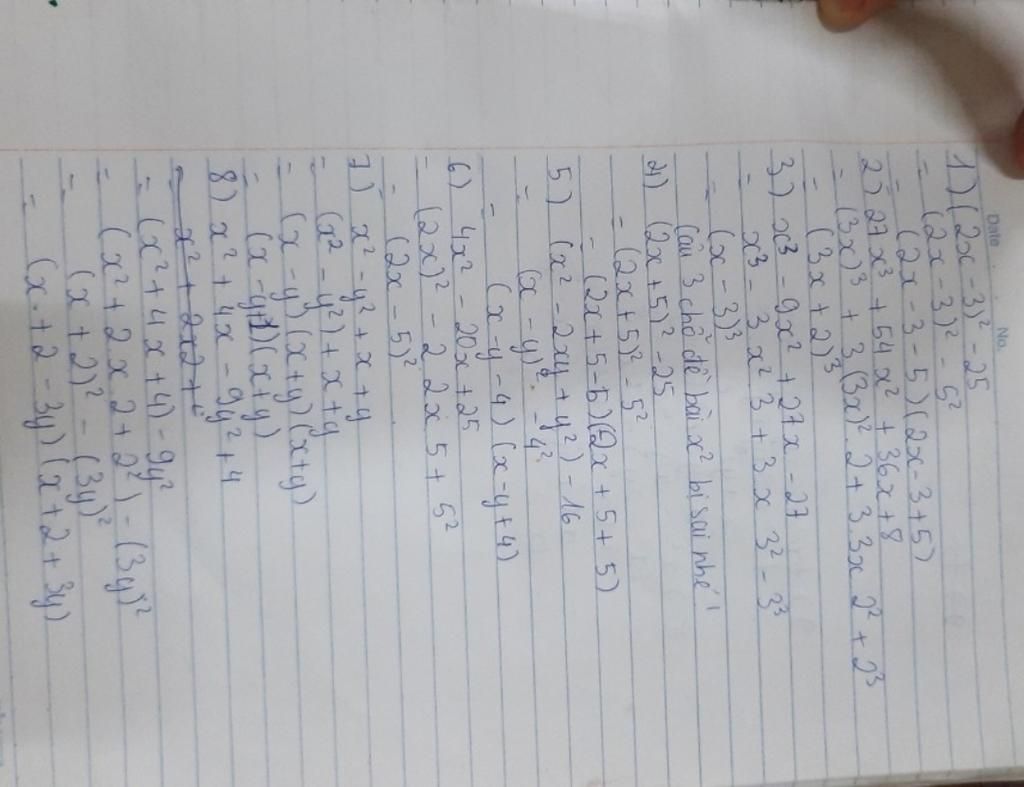 Date
No.
1) (2x - 3)² - 25
= (2x - 3)² - 5²
= (2x - 3 - 5)(2x - 3 + 5)
2) 27x³ + 54x² + 36x + 8
= (3x)³ + 3.(3x)².2 + 3.3x.2² + 2³
= (3x + 2)³
3) x³ - 9x² + 27x - 27
= x³ - 3x²3 + 3x3² - 3³
= (x - 3)³
(câu 3 chỗ đề bài x² bị sai nhé!
4) (2x + 5)² - 25
= (2x + 5)² - 5²
= (2x + 5 - 5)(2x + 5 + 5)
5) (x² - 2xy + y²) - 16
= (x - y)² - 4²
= (x - y - 4)(x - y + 4)
6) 4x² - 20x + 25
= (2x)² - 2.2x.5 + 5²
= (2x - 5)²
7) x² - y² + x + y
= (x² - y²) + x + y
= (x - y)(x + y)(x + y)
= (x - y + 1)(x + y)
8) x² + 4x - 9y² + 4
= (x² + 4x + 4) - 9y²
= (x² + 2x2 + 2²) - (3y)²
= (x + 2)² - (3y)²
= (x + 2 - 3y)(x + 2 + 3y)